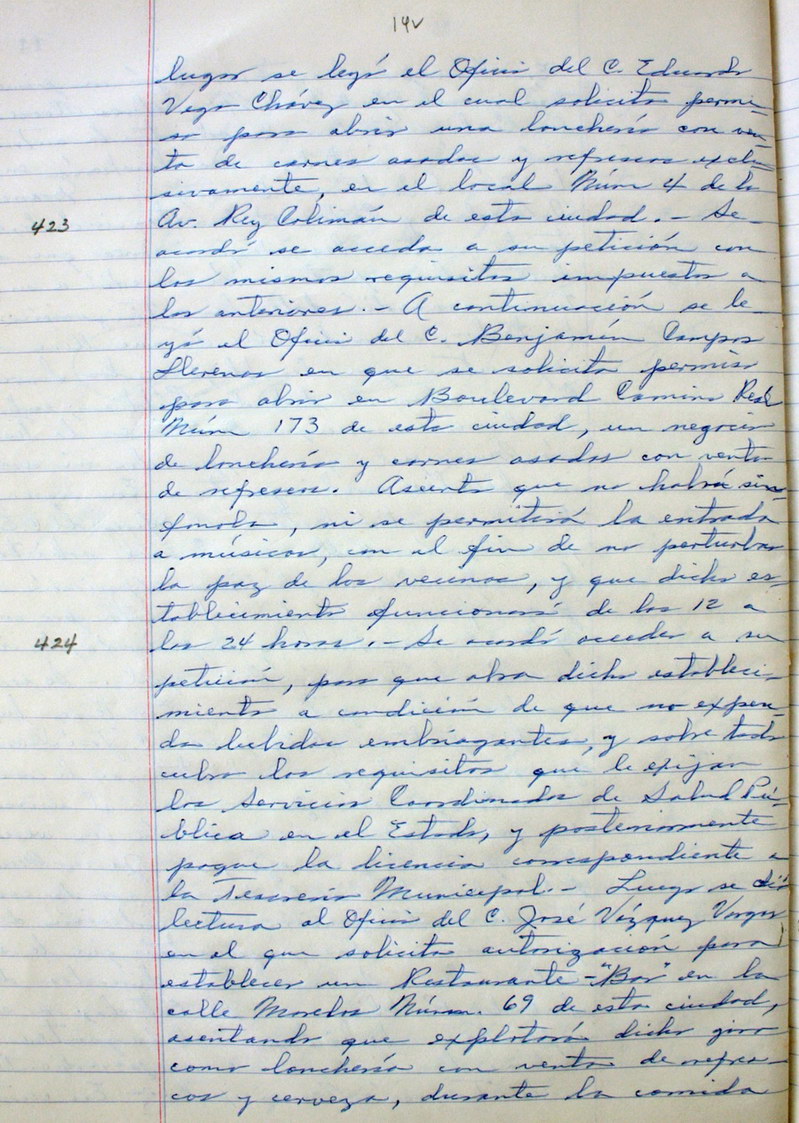 14v
lugar se leyó el Oficio del C. Eduardo
Vega Chávez en el cual solicita permi-
so para abrir una lonchería con ven-
ta de carnes asadas y refrescos exclu-
sivamente, en el local Núm 4 de la
423 Av. Rey Colimán de esta ciudad.- Se
acordó se acceda a su petición con
los mismos requisitos impuestos a
los anteriores.- A continuación se le-
yó el Oficio del C. Benjamín Campos
Llerenas en que se solicita permiso
para abrir en Boulevard Camino Real
Núm 173 de esta ciudad, un negocio
de lonchería y carnes asadas con venta
de refrescos. Asienta que no habrá sin-
fonola, ni se permitirá la entrada
a músicos, con el fin de no perturbar
la paz de los vecinos, y que dicho es-
tablecimiento funcionará de las 12 a
424 las 24 horas.- Se acordó acceder a su
petición, para que abra dicho estableci-
miento a condición de que no expen-
da bebidas embriagantes, y sobre todo
cubra los requisitos que le exijan
los Servicios Coordinados de Salud Pú-
blica en el Estado, y posteriormente
pague la licencia correspondiente a
la Tesorería Municipal.- Luego se dió
lectura al Oficio del C. José Vázquez Vargas
en el que solicita autorización para
establecer un Restaurante-"Bar" en la
calle Morelos Núm. 69 de esta ciudad,
asentando que explotará dicho giro
como lonchería con venta de refres-
cos y cerveza, durante la comida